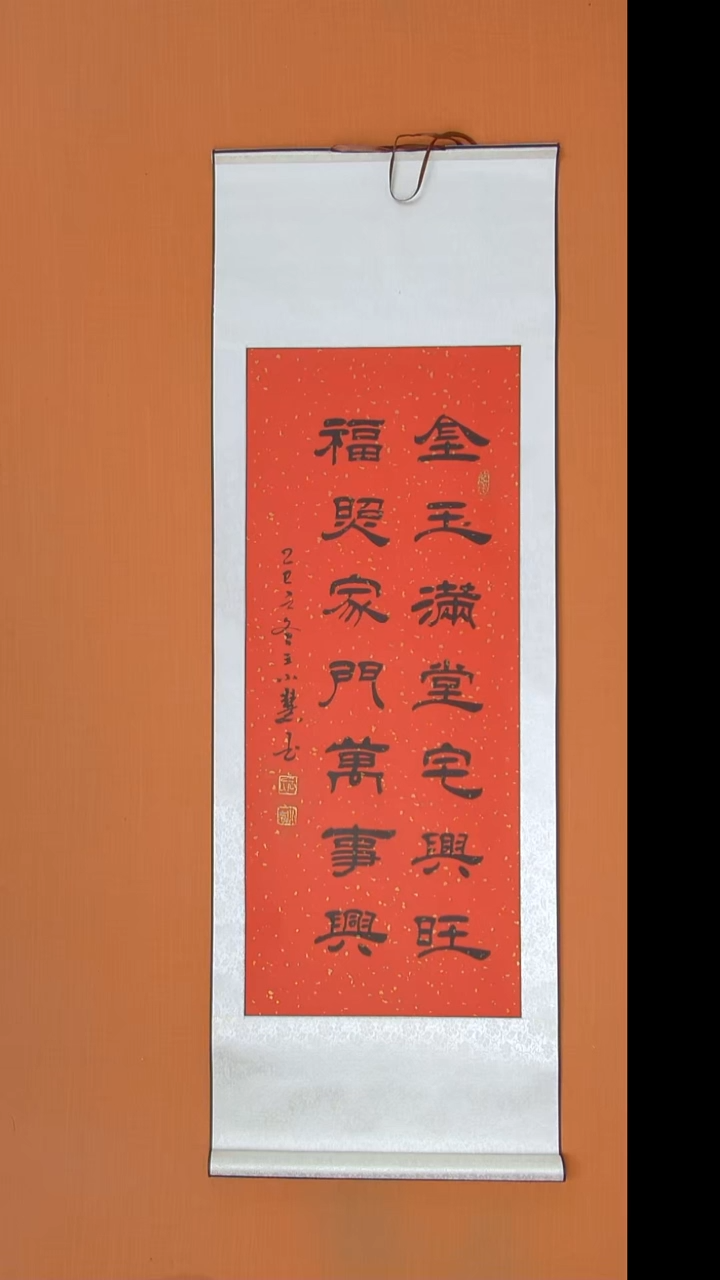 金玉滿堂宅興旺
福照家門萬事興
乙巳之冬王小慧書